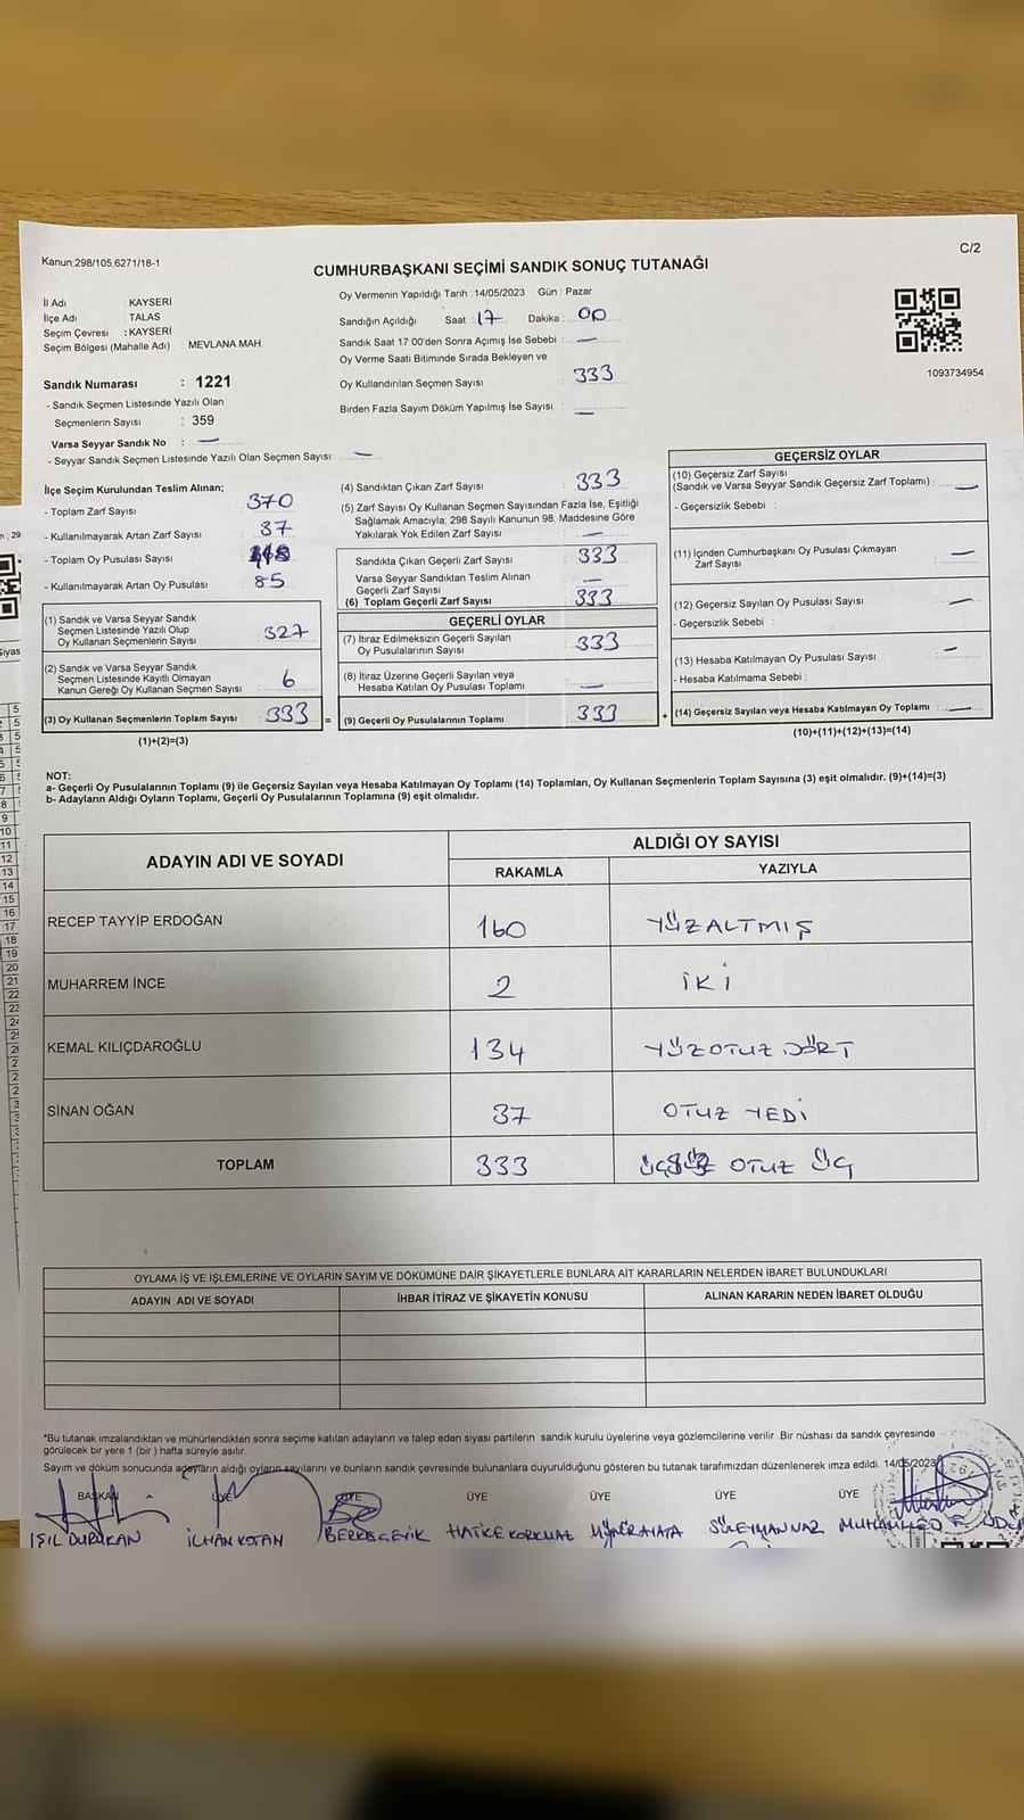 Kanun:298/105,6271/18-1
C/2
CUMHURBAŞKANI SEÇİMİ SANDIK SONUÇ TUTANAĞI
İl Adı KAYSERİ
İlçe Adı TALAS
Seçim Çevresi : KAYSERİ
Seçim Bölgesi (Mahalle Adı) MEVLANA MAH.
Sandık Numarası : 1221
- Sandık Seçmen Listesinde Yazılı Olan
Seçmenlerin Sayısı : 359
Varsa Seyyar Sandık No : —
- Seyyar Sandık Seçmen Listesinde Yazılı Olan Seçmen Sayısı —
Oy Vermenin Yapıldığı Tarih : 14/05/2023 Gün : Pazar
Sandığın Açıldığı Saat : 17 Dakika : 00
Sandık Saat 17:00'den Sonra Açımış İse Sebebi : —
Oy Verme Saati Bitiminde Sırada Bekleyen ve
Oy Kullandırılan Seçmen Sayısı : 333
Birden Fazla Sayım Döküm Yapılmış İse Sayısı : —
1093734954
İlçe Seçim Kurulundan Teslim Alınan;
- Toplam Zarf Sayısı 370
- Kullanılmayarak Artan Zarf Sayısı 37
- Toplam Oy Pusulası Sayısı
- Kullanılmayarak Artan Oy Pusulası 85
(1) Sandık ve Varsa Seyyar Sandık
Seçmen Listesinde Yazılı Olup
Oy Kullanan Seçmenlerin Sayısı 327
(2) Sandık ve Varsa Seyyar Sandık
Seçmen Listesinde Kayıtlı Olmayan
Kanun Gereği Oy Kullanan Seçmen Sayısı 6
(3) Oy Kullanan Seçmenlerin Toplam Sayısı 333 =
(1)+(2)=(3)
(4) Sandıktan Çıkan Zarf Sayısı : 333
(5) Zarf Sayısı Oy Kullanan Seçmen Sayısından Fazla İse, Eşitliği
Sağlamak Amacıyla; 298 Sayılı Kanunun 98. Maddesine Göre
Yakılarak Yok Edilen Zarf Sayısı —
Sandıkta Çıkan Geçerli Zarf Sayısı : 333
Varsa Seyyar Sandıktan Teslim Alınan
Geçerli Zarf Sayısı —
(6) Toplam Geçerli Zarf Sayısı : 333
GEÇERLİ OYLAR
(7) İtiraz Edilmeksizin Geçerli Sayılan
Oy Pusulalarının Sayısı 333
(8) İtiraz Üzerine Geçerli Sayılan veya
Hesaba Katılan Oy Pusulası Toplamı : —
(9) Geçerli Oy Pusulalarının Toplamı : 333 +
GEÇERSİZ OYLAR
(10) Geçersiz Zarf Sayısı
(Sandık ve Varsa Seyyar Sandık Geçersiz Zarf Toplamı) : —
- Geçersizlik Sebebi :
(11) İçinden Cumhurbaşkanı Oy Pusulası Çıkmayan
Zarf Sayısı —
(12) Geçersiz Sayılan Oy Pusulası Sayısı —
- Geçersizlik Sebebi :
(13) Hesaba Katılmayan Oy Pusulası Sayısı —
- Hesaba Katılmama Sebebi :
(14) Geçersiz Sayılan veya Hesaba Katılmayan Oy Toplamı : —
(10)+(11)+(12)+(13)=(14)
NOT:
a- Geçerli Oy Pusulalarının Toplamı (9) ile Geçersiz Sayılan veya Hesaba Katılmayan Oy Toplamı (14) Toplamları, Oy Kullanan Seçmenlerin Toplam Sayısına (3) eşit olmalıdır. (9)+(14)=(3)
b- Adayların Aldığı Oyların Toplamı, Geçerli Oy Pusulalarının Toplamına (9) eşit olmalıdır.
ADAYIN ADI VE SOYADI
ALDIĞI OY SAYISI
RAKAMLA YAZIYLA
RECEP TAYYİP ERDOĞAN 160 YÜZALTMIŞ
MUHARREM İNCE 2 İKİ
KEMAL KILIÇDAROĞLU 134 YÜZOTUZ DÖRT
SİNAN OĞAN 37 OTUZ YEDİ
TOPLAM 333 ÜÇYÜZ OTUZ ÜÇ
OYLAMA İŞ VE İŞLEMLERİNE VE OYLARIN SAYIM VE DÖKÜMÜNE DAİR ŞİKAYETLERLE BUNLARA AİT KARARLARIN NELERDEN İBARET BULUNDUKLARI
ADAYIN ADI VE SOYADI İHBAR İTİRAZ VE ŞİKAYETİN KONUSU ALINAN KARARIN NEDEN İBARET OLDUĞU
*Bu tutanak imzalandıktan ve mühürlendikten sonra seçime katılan adayların ve talep eden siyasi partilerin sandık kurulu üyelerine veya gözlemcilerine verilir. Bir nüshası da sandık çevresinde
görülecek bir yere 1 (bir) hafta süreyle asılır.
Sayım ve döküm sonucunda adayların aldığı oyların sayılarını ve bunların sandık çevresinde bulunanlara duyurulduğunu gösteren bu tutanak tarafımızdan düzenlenerek imza edildi. 14/05/2023
BAŞKAN ÜYE ÜYE ÜYE ÜYE ÜYE ÜYE
IŞIL DURUKAN İLHAN KOTAN BERKE ÇEVİK HATİCE KORKMAZ MÜNÜR AYATA SÜLEYMAN NAZ MUHAMMED F.